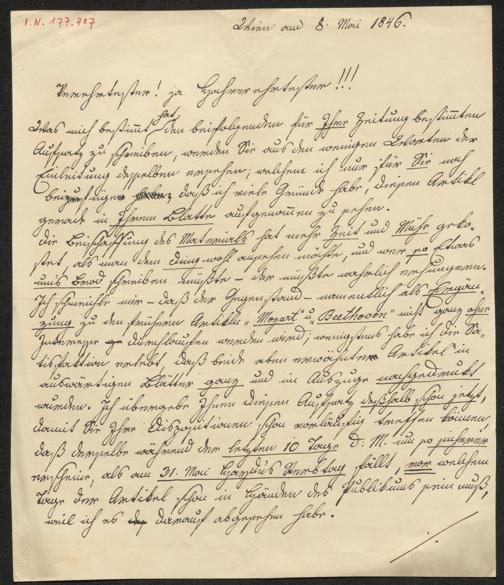 I.N. 177.707
Wien am 8. Mai 1846.
Verehrtester! ja Hochverehrtester!!!
Was mich bestimmt hat den beifolgenden für Ihre Zeitung bestimmten
Aufsatz zu schreiben, werden Sie aus den wenigen Worten der
Einleitung desselben ersehen; welchem ich nur für Sie noch
daß ich viele Gründe habe, diesen Artikel
gerade in Ihrem Blatte aufgenommen zu sehen.
Die Beischaffung des Materials hat mehr Zeit und Mühe geko-
stet, als man dem Ding wohl ansehen möchte, und wer so Etwas
um's Brod schreiben müßte - der müßte wahrlich verhungern.
Ich schmeichle mir - daß der Gegenstand - namentlich als Ergän-
zung zu den frühern Artikeln „Mozart" u „Beethoven" nicht ganz ohne
Interesse durchlaufen werden wird; wenigstens habe ich die Sa-
tisfaktion erlebt, daß beide eben erwähnten Artikel in
auswärtigen Blätter ganz und im Auszuge nachgedruckt
wurden. Ich übergebe Ihnen diesen Aufsatz deßhalb schon jetzt,
damit Sie Ihre Dispositionen schon vorläufig treffen können,
daß derselbe während der letzten 10 Tage d. M. um so sicherer
erscheine, als am 31. Mai Haydn's Sterbtag fällt, vor welchem
Tage der Artikel schon in Händen des Publikums sein muß,
weil ich es darauf abgesehen habe.